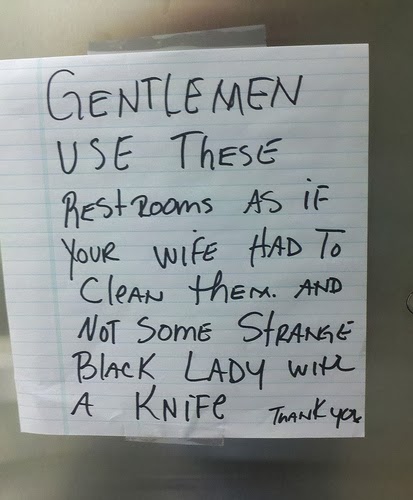 GENTLEMEN
USE THESE
RESTROOMS AS IF
YOUR WIFE HAD TO
CLEAN THEM. AND
NOT SOME STRANGE
BLACK LADY WITH
A KNIFE THANK YOU